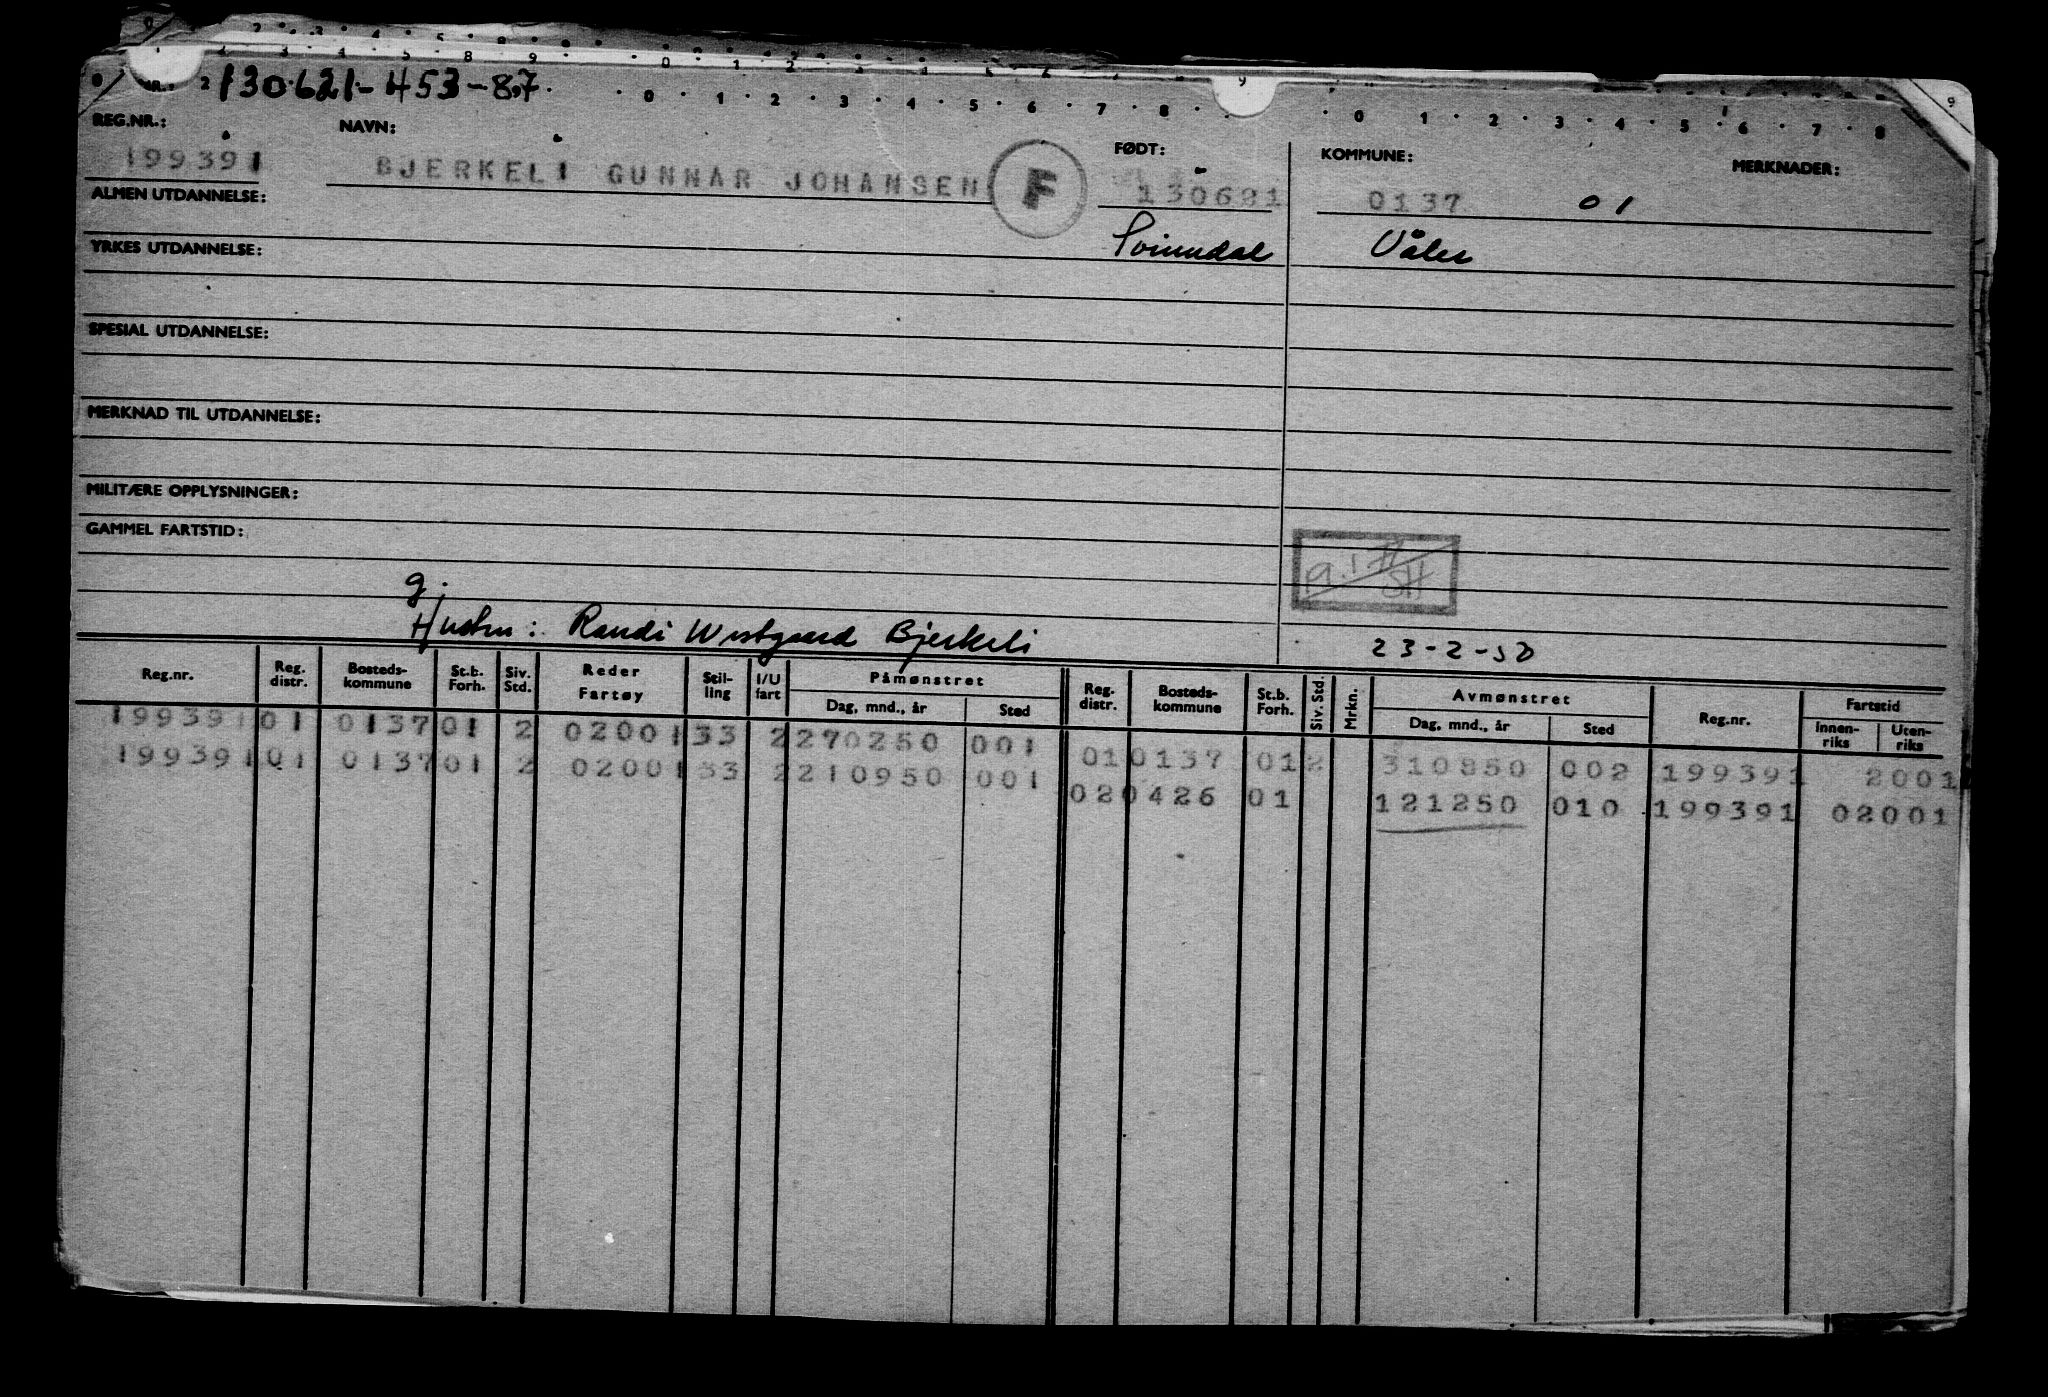 NR.: 2 130.621-453-87.
REG.NR.: NAVN: FØDT: KOMMUNE: MERKNADER:
199391 BJERKELI GUNNAR JOHANSEN F 130621 0137 01
ALMEN UTDANNELSE:
Svinndal Våler
YRKES UTDANNELSE:
SPESIAL UTDANNELSE:
MERKNAD TIL UTDANNELSE:
MILITÆRE OPPLYSNINGER:
GAMMEL FARTSTID:
g.
Hustru: Randi Westgaard Bjerkeli
23-2-50
Reg.nr. Reg. distr. Bosteds-kommune St.b. Forh. Siv. Std. Reder Fartøy Stil-ling I/U fart Påmønstret Dag, mnd., år Sted Reg. distr. Bosteds-kommune St.b. Forh. Siv. Std. Mrkn. Avmønstret Dag, mnd., år Sted Reg.nr. Fartstid Innen-riks Uten-riks
199391 01 0137 01 2 02001 33 2 270250 001 01 0137 01 2 310850 002 199391 2001
199391 01 0137 01 2 02001 33 2 210950 001 02 0426 01 121250 010 199391 02001